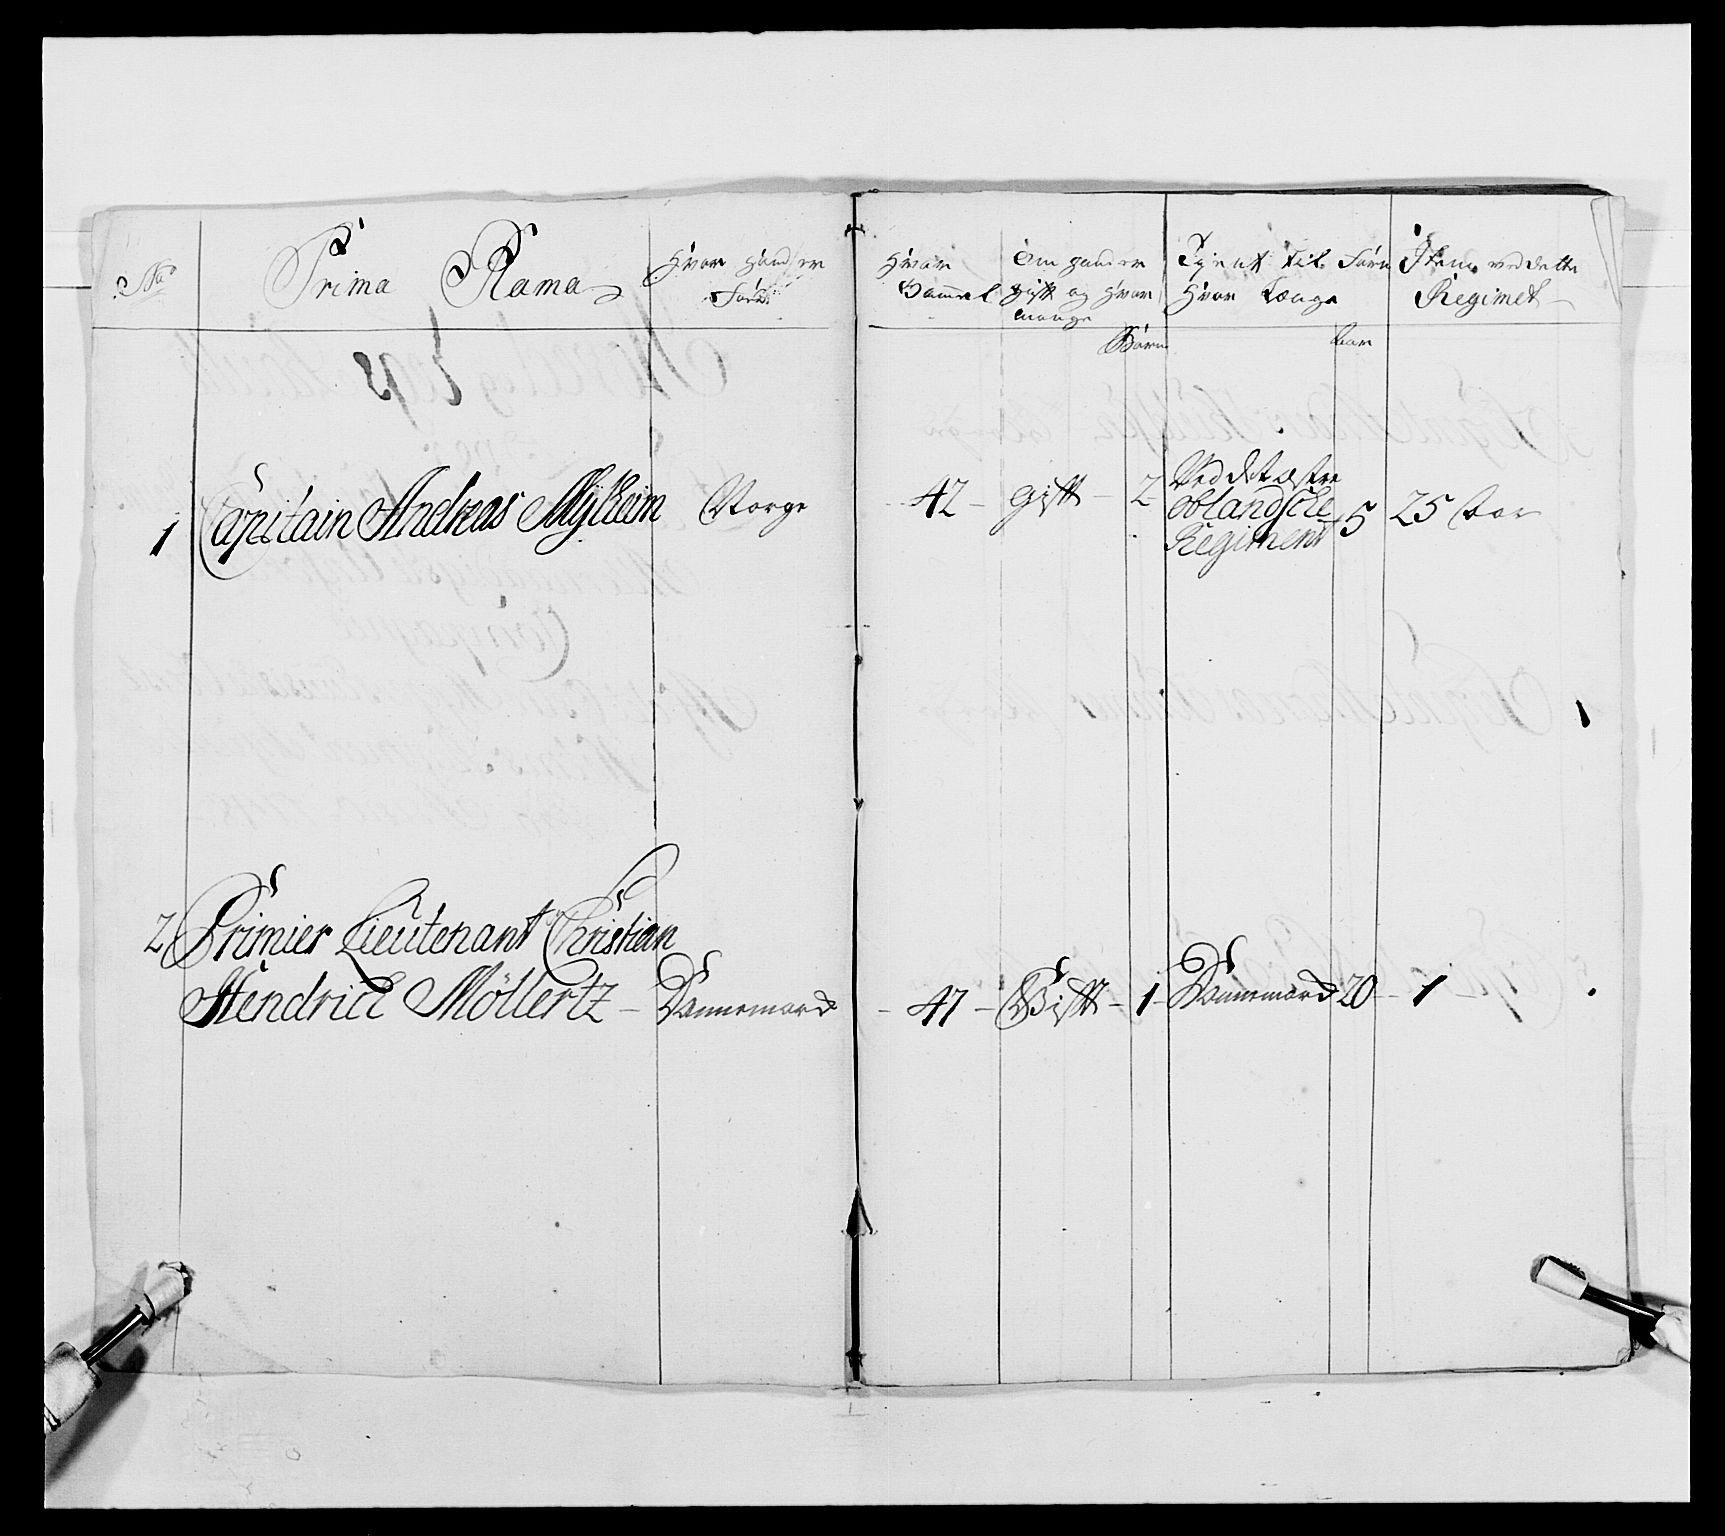 No
Prima Plama
Hvor hand er
Föed
Hvor
Gammel
Om hand er
gift og hvor
mange
Börn
Tient til Forn
Hvor Længe
Aar
Item ved dette
Regimet
1 Capitain Andreas Mylheim Norge 42 Gift 2 Ved det Østre
Oplandsche
Regiment 5 25 Aar
2 Primier Lieutenant Christian
Hendrich Möllertz Dannemarck 47 Gift 1 Dannemarck 20 1